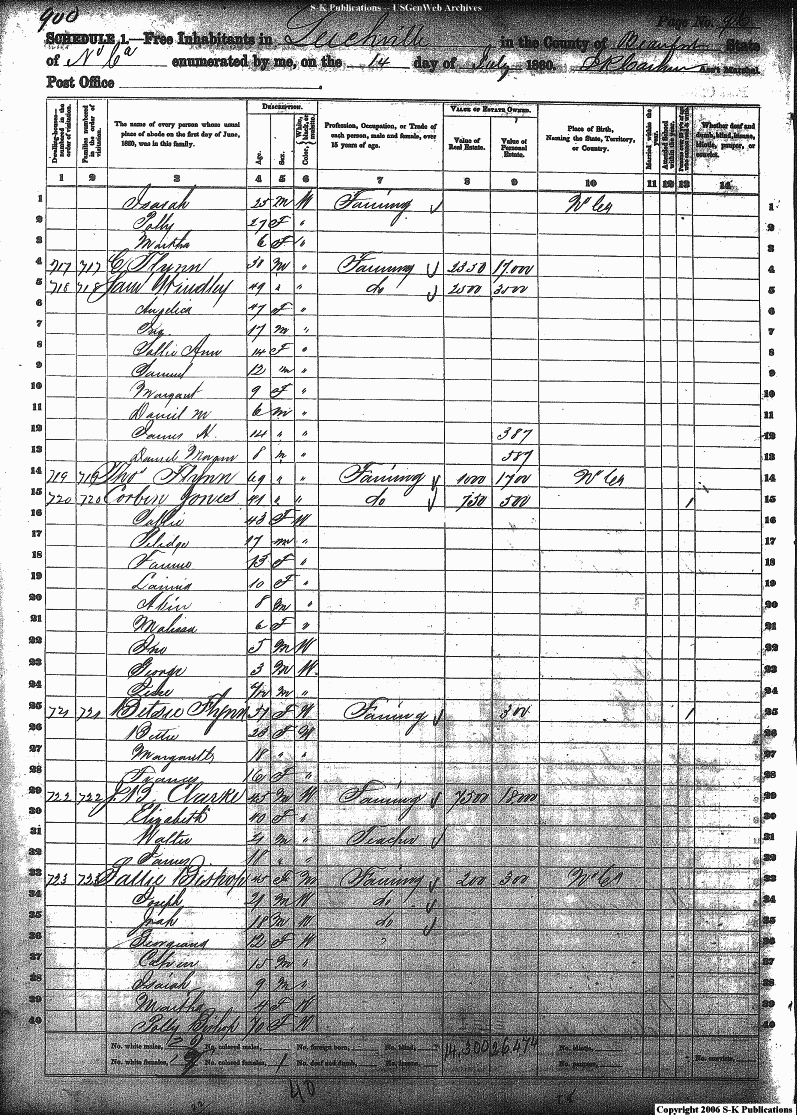 S-K Publications -- USGenWeb Archives
900
Page No. 96
SCHEDULE 1.—Free Inhabitants in Leechville in the County of Beaufort State
of No Ca enumerated by me, on the 14 day of July 1860. Ass't Marshal.
Post Office
DESCRIPTION.
VALUE OF ESTATE OWNED.
Dwelling-houses—numbered in the order of visitation.
Families numbered in the order of visitation.
The name of every person whose usual place of abode on the first day of June, 1860, was in this family.
Age.
Sex.
Color, White, black, or mulatto.
Profession, Occupation, or Trade of each person, male and female, over 15 years of age.
Value of Real Estate.
Value of Personal Estate.
Place of Birth, Naming the State, Territory, or Country.
Married within the year.
Attended School within the year.
Whether deaf and dumb, blind, insane, idiotic, pauper, or convict.
1 2 3 4 5 6 7 8 9 10 11 12 13 14
1 Isaiah 25 M W Farming No Ca 1
2 Polly 27 F " 2
3 Martha 6 F " 3
4 717 717 C Flynn 30 M " Farming 2350 17,000 4
5 718 718 Sam Windley 49 " " do 2500 3500 5
6 Angelica 47 F " 6
7 17 M " 7
8 Sallie Ann 14 F " 8
9 Samuel 12 M " 9
10 Margaret 9 F " 10
11 Daniel M 6 M " 11
12 James H. 14 " " 387 12
13 Daniel Morgan 8 M " 387 13
14 719 719 Thos Flynn 69 " " Farming 1000 1700 No Ca 14
15 720 720 Corbin Jones 41 " " do 750 500 1 15
16 Sallie 43 F W 16
17 17 M " 17
18 13 F " 18
19 10 F " 19
20 8 M " 20
21 Malissa 6 F " 21
22 Jno 5 M W 22
23 George 3 M W. 23
24 M " 24
25 721 721 Betsie Flynn 51 F W Farming 300 1 25
26 Bettie 23 F W 26
27 Margarett 18 " " 27
28 Frances 16 F " 28
29 722 722 Clarke 45 M W Farming 7500 18000 29
30 Elizabeth 40 F " 30
31 Walter 21 M " Teacher 31
32 James 18 " " 32
33 723 723 Sallie Bishop 45 F M Farming 200 300 No Ca 33
34 Joseph 21 M W do 34
35 18 M W do 35
36 Georgiana 12 F W 36
37 Calvin 15 M " 37
38 Isaiah 9 M " 38
39 Martha 4 F W 39
40 Polly Bishop 70 F W 40
No. white males, 20 No. colored males, No. foreign born, No. blind, 14,300 26,474 No. idiotic, No. convicts,
No. white females, 19 No. colored females, 1 No. deaf and dumb, No. insane, No. paupers,
40
Copyright 2006 S-K Publications